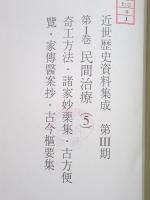 近世歴史資料集成 第Ⅲ期
第1巻 民間治療(5)
奇工方法・諸家妙薬集・古方便
覧・家傳醫案抄・古今樞要集